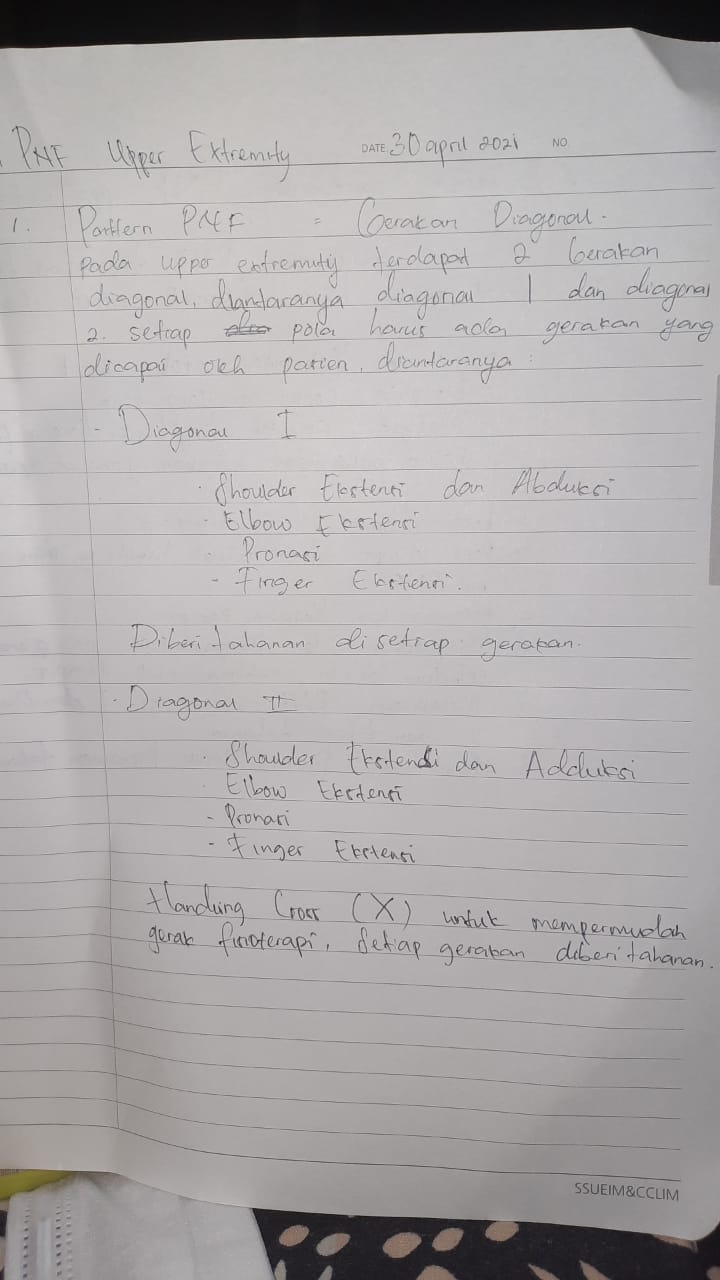 PNF Upper Extremity DATE 30 april 2021 NO.
1. Pattern PNF = Gerakan Diagonal.
Pada upper extremity terdapat 2 Gerakan
diagonal, diantaranya diagonal 1 dan diagonal
2. setiap pola harus ada gerakan yang
dicapai oleh pasien, diantaranya :
- Diagonal I
· Shoulder Ekstensi dan Abduksi
· Elbow Ekstensi
· Pronasi
- Finger Ekstensi.
Diberi tahanan di setiap gerakan.
· Diagonal II
· Shoulder Ekstensi dan Adduksi
· Elbow Ekstensi
- Pronasi
- Finger Ekstensi
Handling Cross (X) untuk mempermudah
gerak fisioterapi, Setiap gerakan diberi tahanan.
SSUEIM&CCLIM